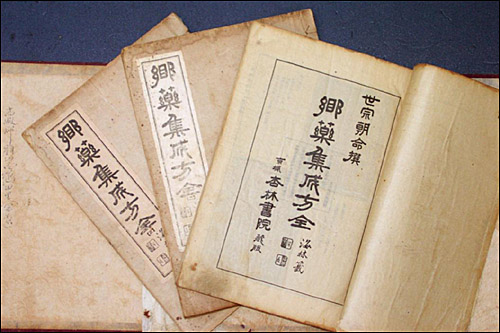 世宗朝命撰
鄕藥集成方全
京城 杏林書院 藏版
鄕藥集成方全
鄕藥集成方全